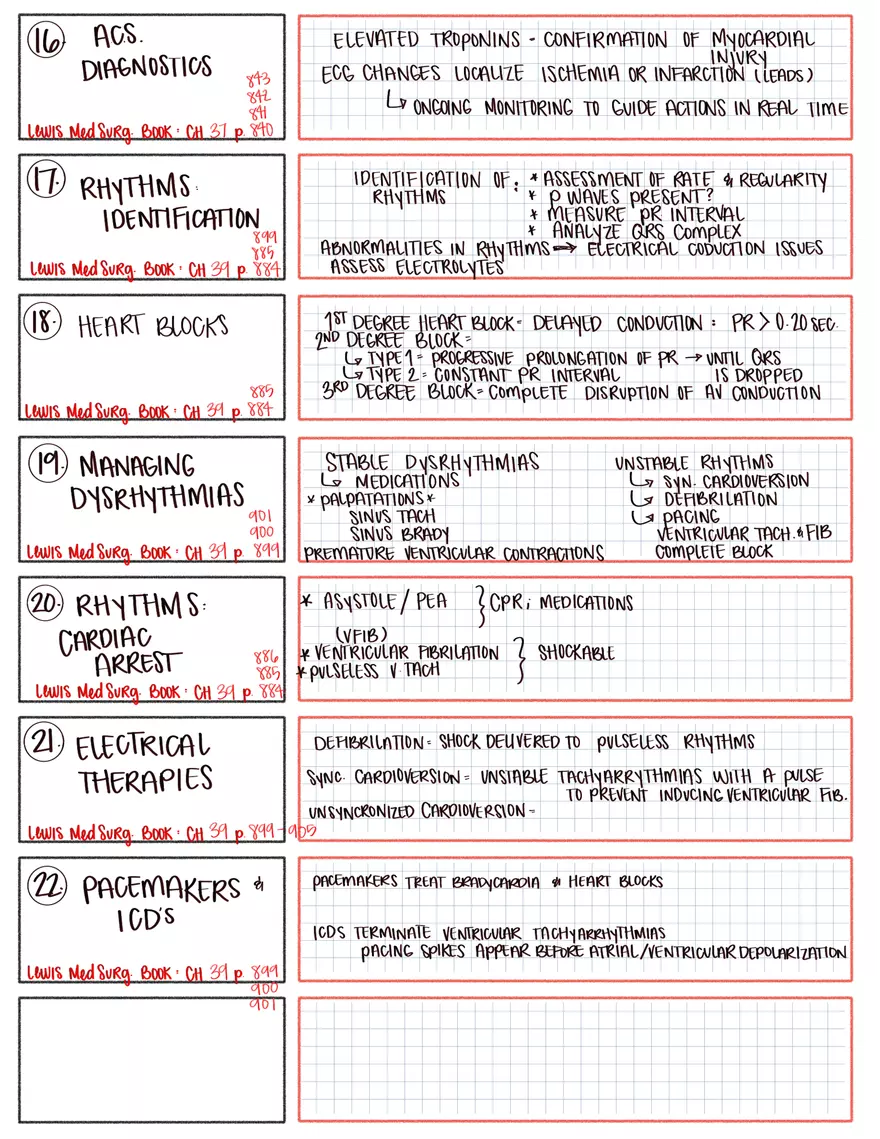 16. ACS.
DIAGNOSTICS
843
842
841
Lewis Med Surg. BOOK: CH 37 p. 840
ELEVATED TROPONINS - CONFIRMATION OF MYOCARDIAL
INJURY
ECG CHANGES LOCALIZE ISCHEMIA OR INFARCTION (LEADS)
↳ ONGOING MONITORING TO GUIDE ACTIONS IN REAL TIME
17. RHYTHMS:
IDENTIFICATION
899
885
Lewis Med Surg. BOOK: CH 39 p. 884
IDENTIFICATION OF: * ASSESSMENT OF RATE & REGULARITY
RHYTHMS * P WAVES PRESENT?
* MEASURE PR INTERVAL
* ANALYZE QRS COMPLEX
ABNORMALITIES IN RHYTHMS ⇒ ELECTRICAL CODUCTION ISSUES
ASSESS ELECTROLYTES
18. HEART BLOCKS
885
Lewis Med Surg. BOOK: CH 39 p. 884
1ST DEGREE HEART BLOCK = DELAYED CONDUCTION : PR > 0.20 SEC.
2ND DEGREE BLOCK=
↳ TYPE 1 = PROGRESSIVE PROLONGATION OF PR → UNTIL QRS
↳ TYPE 2 = CONSTANT PR INTERVAL IS DROPPED
3RD DEGREE BLOCK = COMPLETE DISRUPTION OF AV CONDUCTION
19. MANAGING
DYSRHYTHMIAS
901
900
Lewis Med Surg. BOOK: CH 39 p. 899
STABLE DYSRHYTHMIAS
↳ MEDICATIONS
* PALPATATIONS *
SINUS TACH
SINUS BRADY
PREMATURE VENTRICULAR CONTRACTIONS
UNSTABLE RHYTHMS
↳ SYN. CARDIOVERSION
↳ DEFIBRILATION
↳ PACING
VENTRICULAR TACH. & FIB
COMPLETE BLOCK
20. RHYTHMS:
CARDIAC
ARREST
886
885
Lewis Med Surg. BOOK: CH 39 p. 884
* ASYSTOLE / PEA } CPR; MEDICATIONS
(VFIB)
* VENTRICULAR FIBRILATION } SHOCKABLE
* PULSELESS V. TACH
21. ELECTRICAL
THERAPIES
Lewis Med Surg. BOOK: CH 39 p. 899-905
DEFIBRILATION = SHOCK DELIVERED TO PULSELESS RHYTHMS
SYNC. CARDIOVERSION = UNSTABLE TACHYARRYTHMIAS WITH A PULSE
TO PREVENT INDUCING VENTRICULAR FIB.
UNSYNCRONIZED CARDIOVERSION =
22. PACEMAKERS &
ICD'S
Lewis Med Surg. BOOK: CH 39 p. 899
900
901
PACEMAKERS TREAT BRADYCARDIA & HEART BLOCKS
ICDS TERMINATE VENTRICULAR TACHYARRHYTHMIAS
PACING SPIKES APPEAR BEFORE ATRIAL/VENTRICULAR DEPOLARIZATION